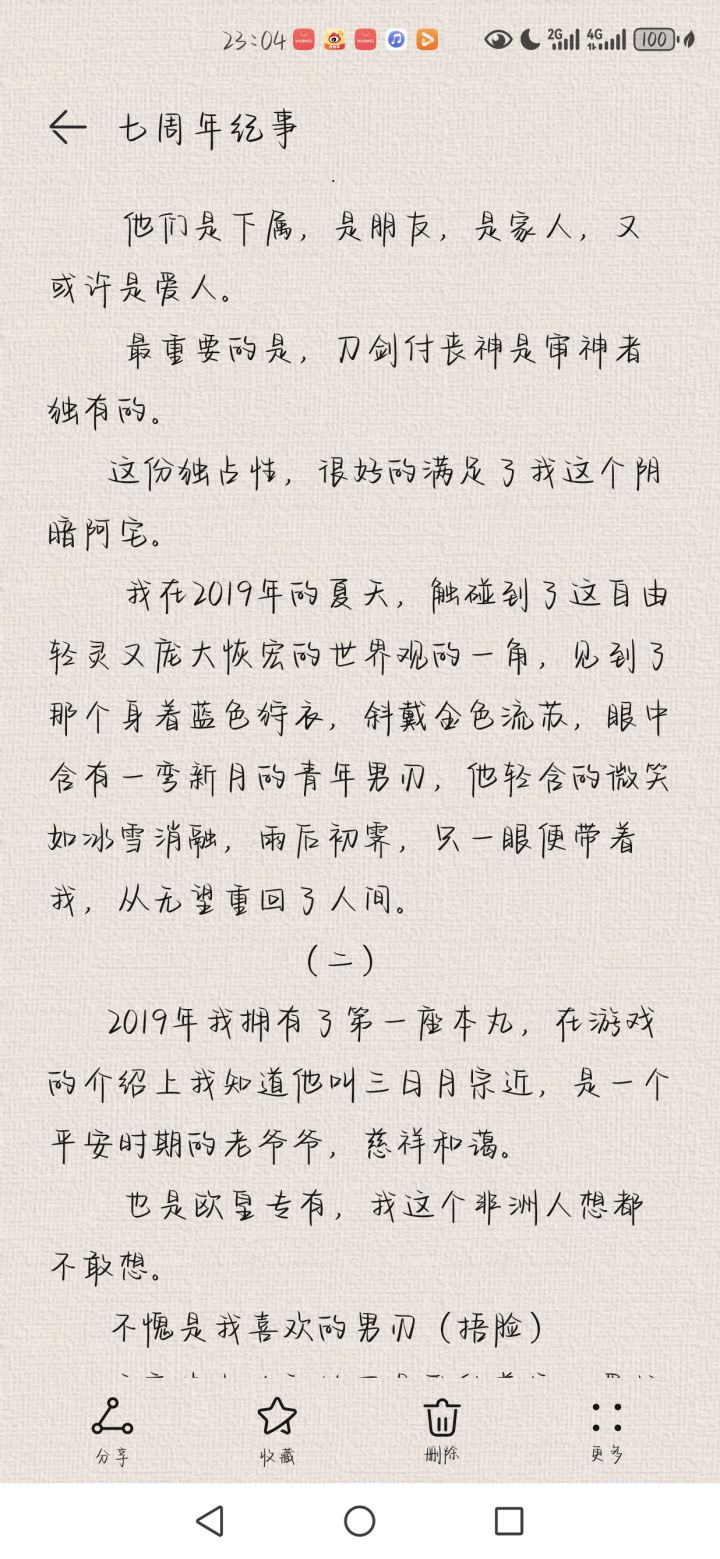 23:04 HUAWEI HUAWEI 2G 4G 100
七周年纪事
他们是下属，是朋友，是家人，又
或许是爱人。
最重要的是，刀剑付丧神是审神者
独有的。
这份独占性，很好的满足了我这个阴
暗阿宅。
我在2019年的夏天，触碰到了这自由
轻灵又庞大恢宏的世界观的一角，见到了
那个身着蓝色狩衣，斜戴金色流苏，眼中
含有一弯新月的青年男刃，他轻含的微笑
如冰雪消融，雨后初霁，只一眼便带着
我，从无望重回了人间。
（二）
2019年我拥有了第一座本丸，在游戏
的介绍上我知道他叫三日月宗近，是一个
平安时期的老爷爷，慈祥和蔼。
也是欧皇专有，我这个非洲人想都
不敢想。
不愧是我喜欢的男刃（捂脸）
分享 收藏 删除 更多